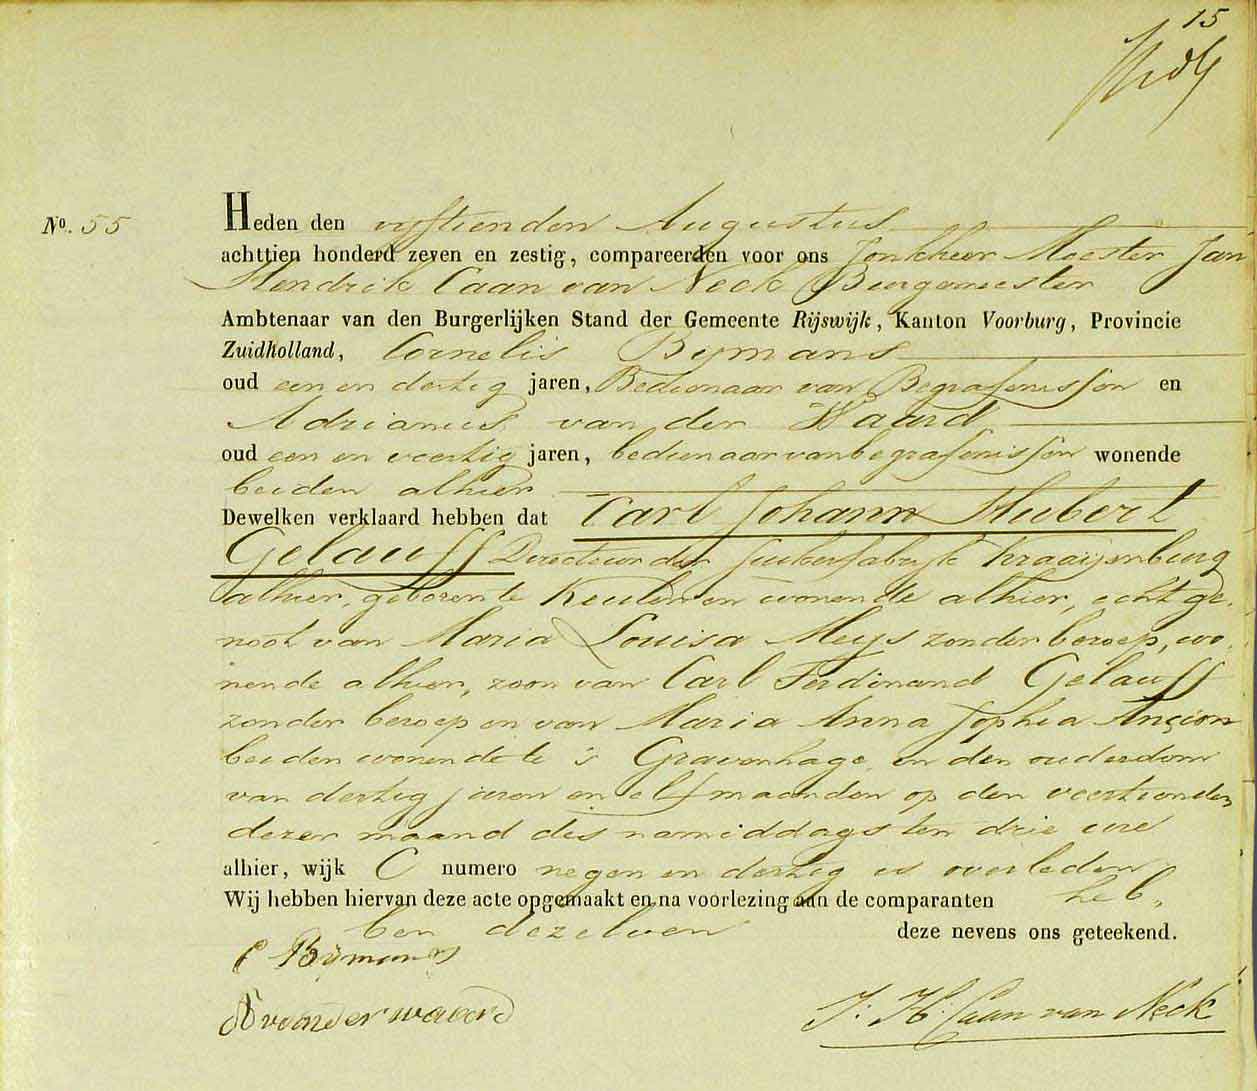 15
No. 55
Heden den vijftienden Augustus
achttien honderd zeven en zestig, compareerden voor ons Jonkheer Meester Jan
Hendrik Caan van Neck Burgemeester
Ambtenaar van den Burgerlijken Stand der Gemeente Rijswijk, Kanton Voorburg, Provincie
Zuidholland, Cornelis Bijmans
oud een en dertig jaren, Bedienaar van Begrafenissen en
Adrianus van der Waard
oud een en veertig jaren, bedienaar van begrafenissen wonende
beiden alhier
Dewelken verklaard hebben dat Carl Johann Hubert
Gelauff Directeur der suikerfabryk Kraaijenburg
alhier, geboren te Keulen en wonende alhier, echtge-
noot van Maria Louisa Meijs zonder beroep, wo-
nende alhier, zoon van Carl Ferdinand Gelauff
zonder beroep en van Maria Anna Sophia Ançion
beiden wonende te 's Gravenhage, in den ouderdom
van dertig jaren en elf maanden op den veertienden
dezer maand des namiddags ten drie ure
alhier, wijk C numero negen en dertig is overleden
Wij hebben hiervan deze acte opgemaakt en na voorlezing aan de comparanten heb-
ben dezelven deze nevens ons geteekend.
C Bijmans
A van der waard
J. H. Caan van Neck